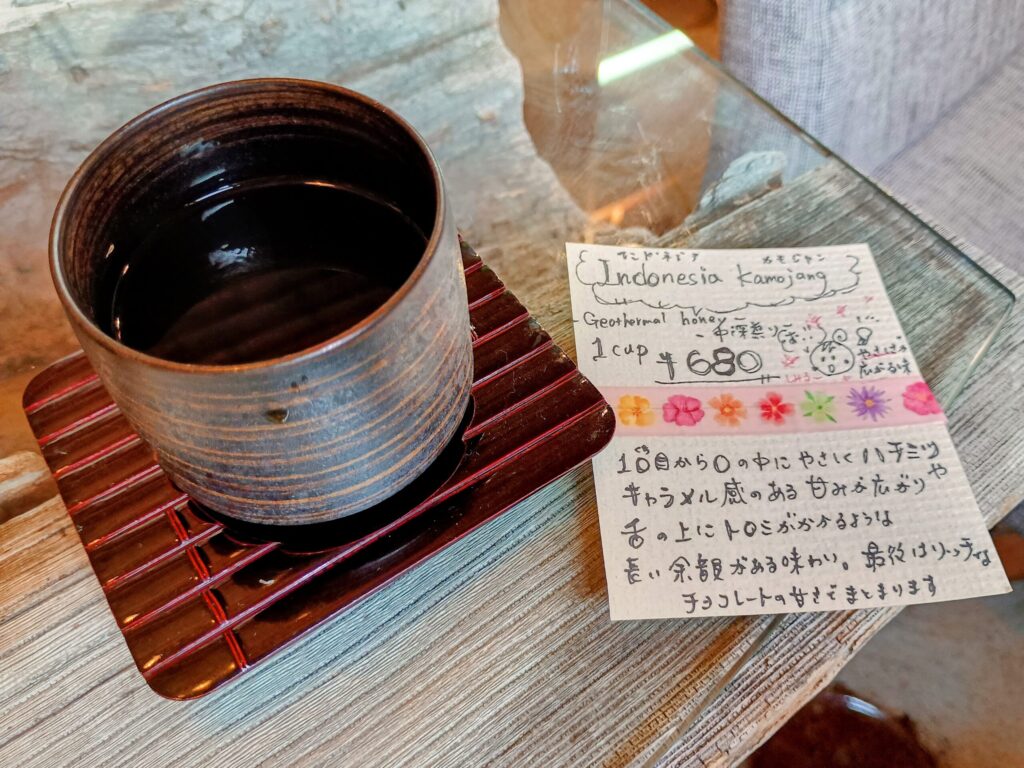 インドネシア カモジャン
Indonesia Kamojang
Geothermal honey
中深煎り
1cup ¥680
やさしく
広がる味
1口目から口の中にやさしくハチミツや
キャラメル感のある甘みが広がり
舌の上にトロミがかかるような
長い余韻がある味わい。最後はリッチな
チョコレートの甘さでまとまります